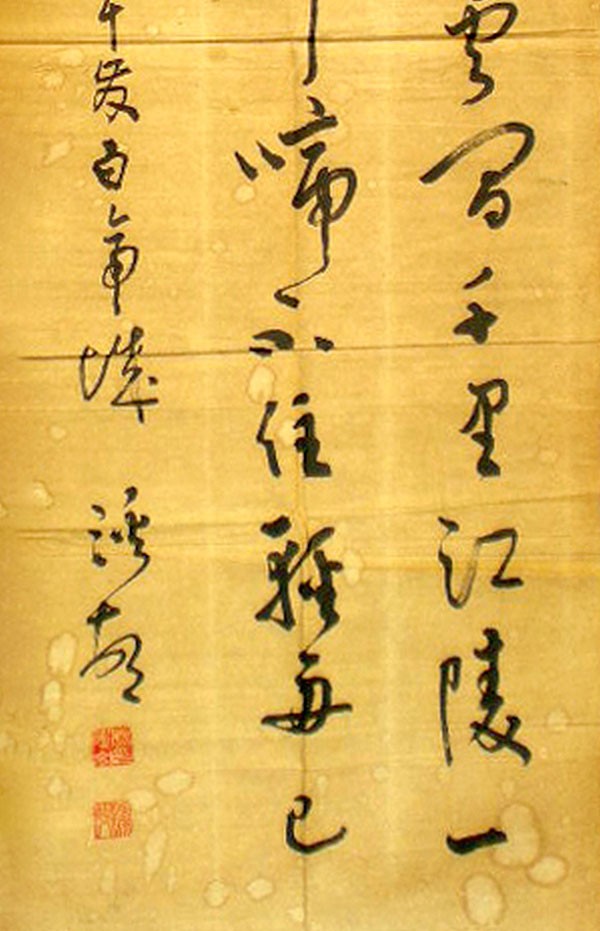 雲間千里江陵一
啼不住輕舟已
發白帝城